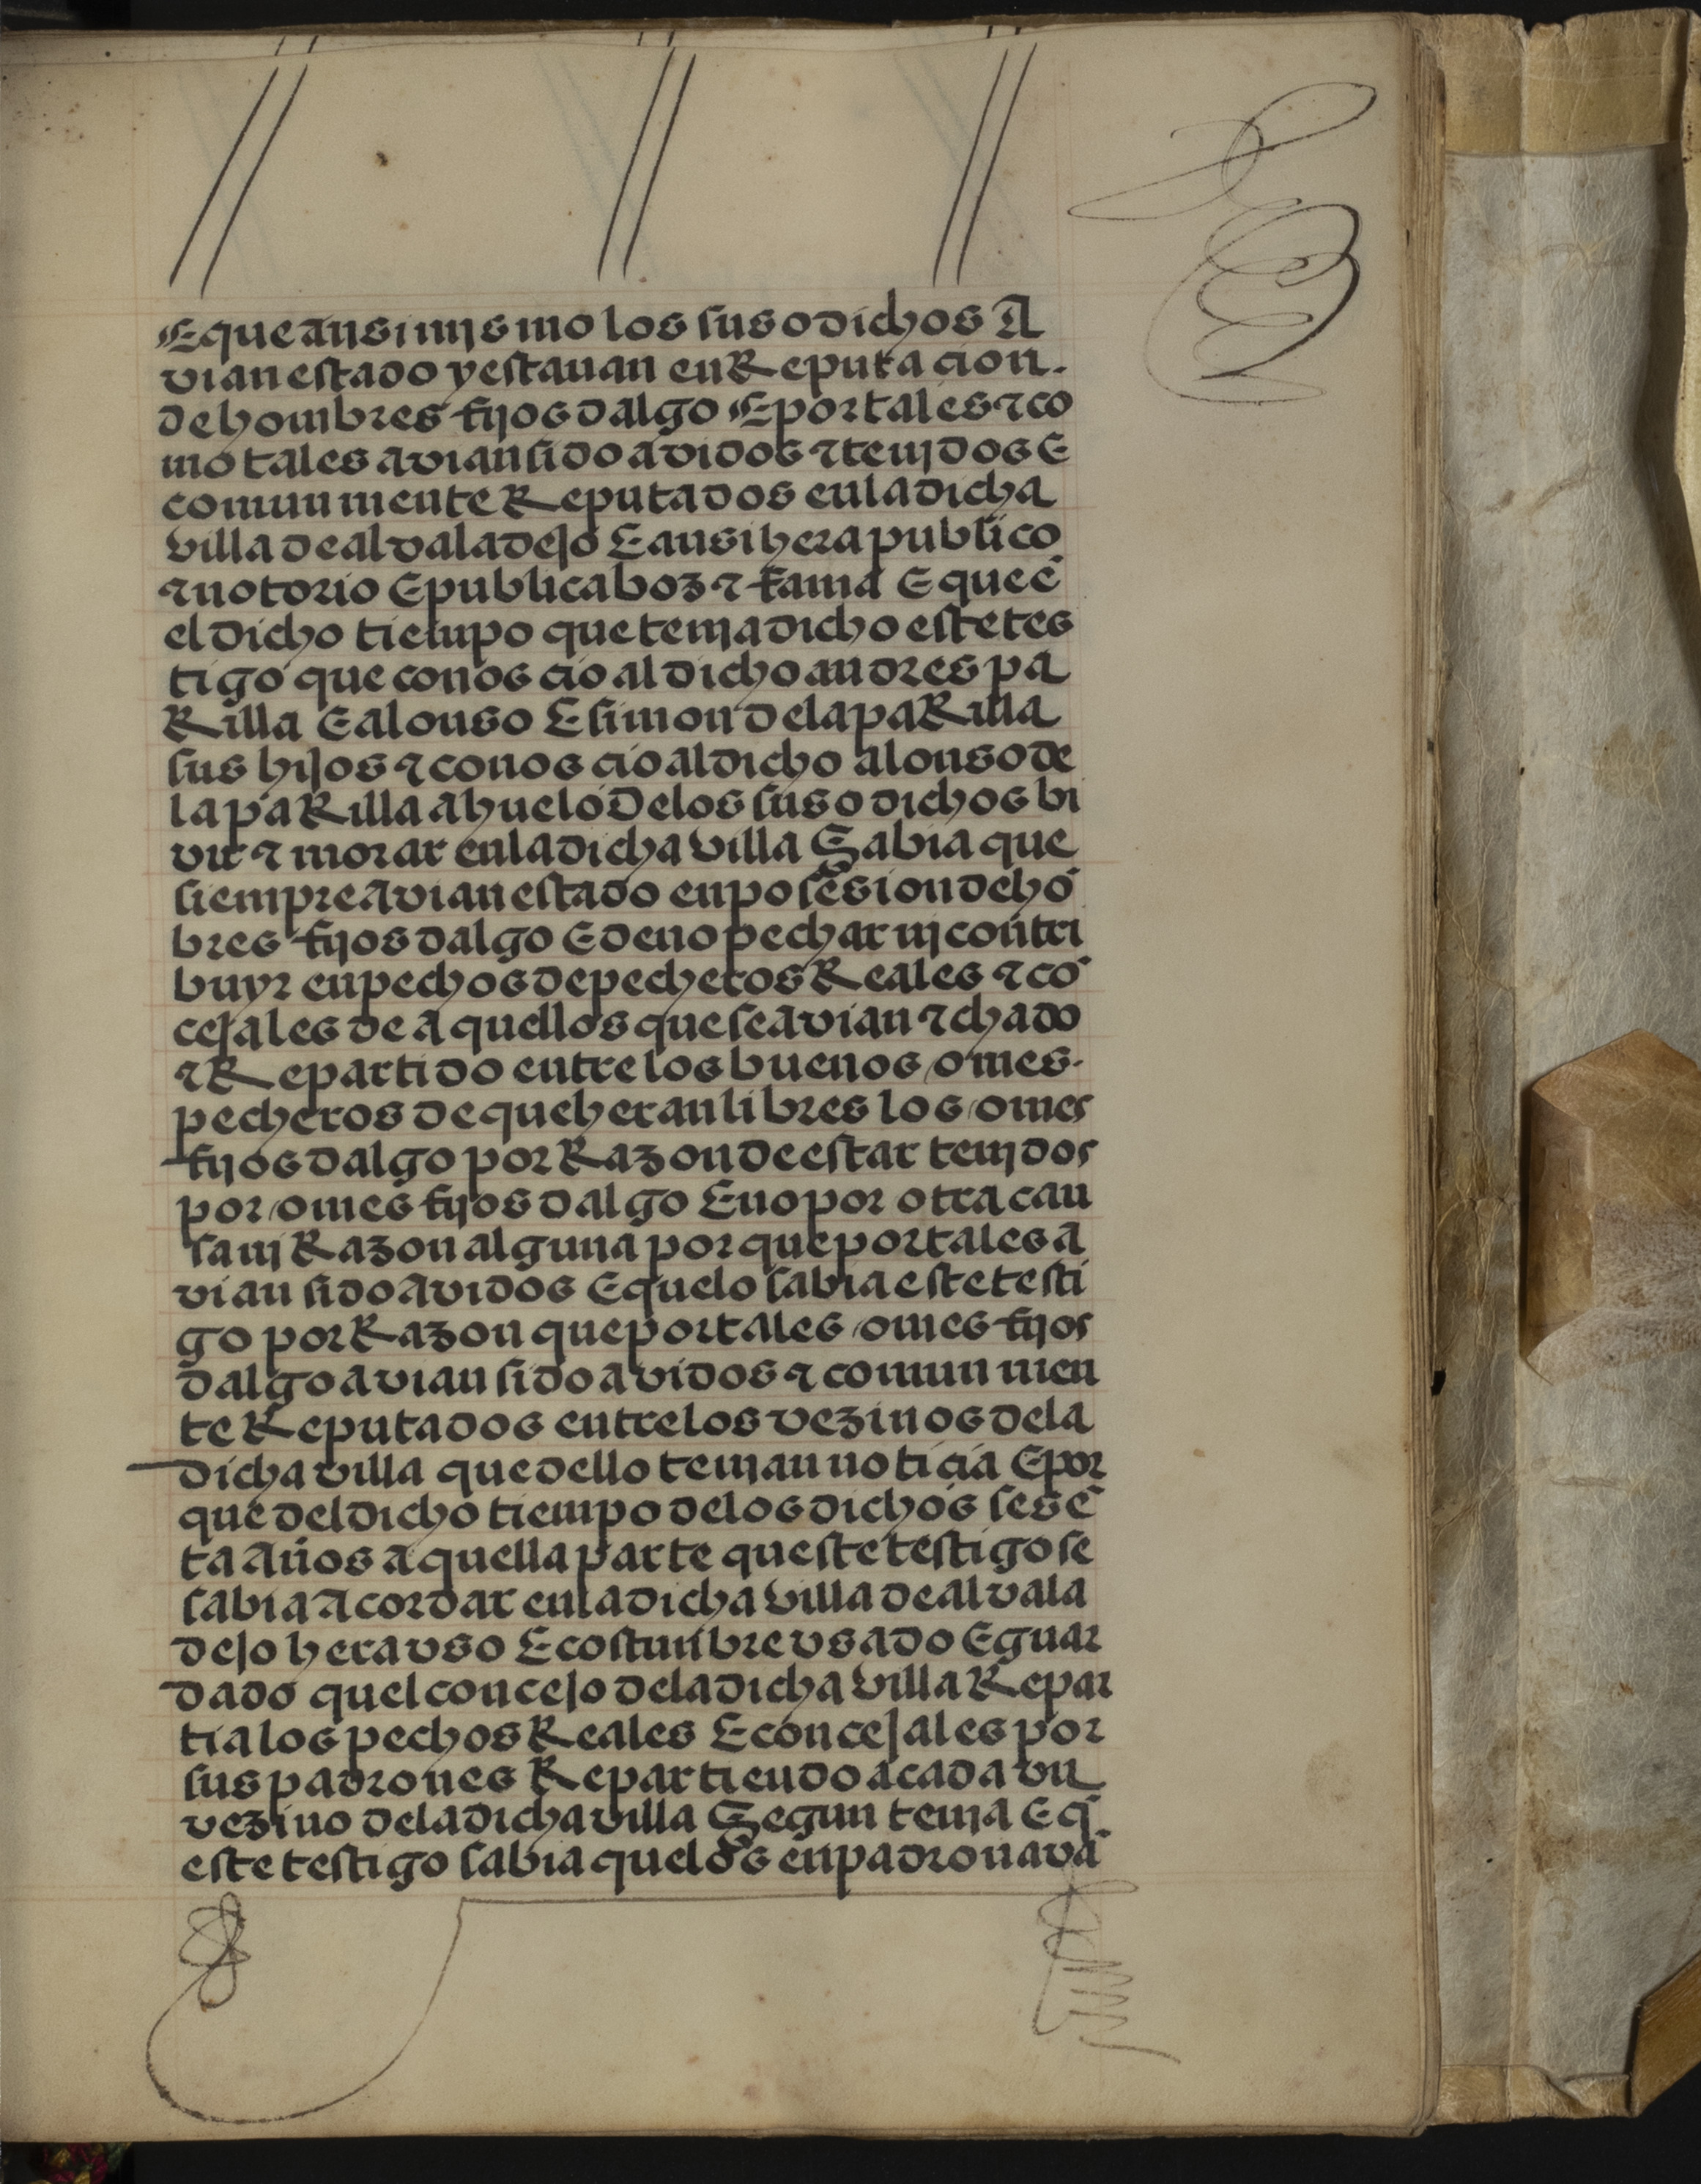 E que ansi mysmo los suso dichos A
vian estado y estauan en Reputacion.
de hombres fijos dalgo E por tales ⁊ co
mo tales avian sido avidos ⁊ tenjdos E
comunmente Reputados en la dicha
villa de alvaladejo E ansi hera publico
⁊ notorio E publica boz ⁊ fama E que ē
el dicho tiempo que tenja dicho este tes
tigo que conoscio al dicho andres pa
Rilla E alonso E simon de la paRilla
sus hijos ⁊ conoscio al dicho alonso de
la paRilla ahuelo de los suso dichos bi
vir ⁊ morar en la dicha villa Sabia que
siempre avian estado en posesion de hō
bres fijos dalgo E de no pechar nj contri
buyr en pechos de pecheros Reales ⁊ cō
cejales de aquellos que se avian ⁊chado
⁊ Repartido entre los buenos omes.
pecheros de que heran libres los omes
fijos dalgo por Razon de estar tenjdos
por omes fijos dalgo E no por otra cau
sa nj Razon alguna por que por tales a
vian sido avidos E que lo sabia este testi
go por Razon que por tales omes fijos
dalgo avian sido avidos ⁊ comunmen
te Reputados entre los vezinos de la
dicha villa que dello tenjan noticia E por
que del dicho tiempo de los dichos sesē
ta años a quella parte queste testigo se
sabia acordar en la dicha villa de alvala
dejo hera vso E costunbre vsado E guar
dado quel concejo de la dicha villa Repar
tia los pechos Reales E concejales por
sus padrones Repartiendo a cada vn
vezino de la dicha villa Segun tenja E q̄
este testigo sabia que los enpadronavā